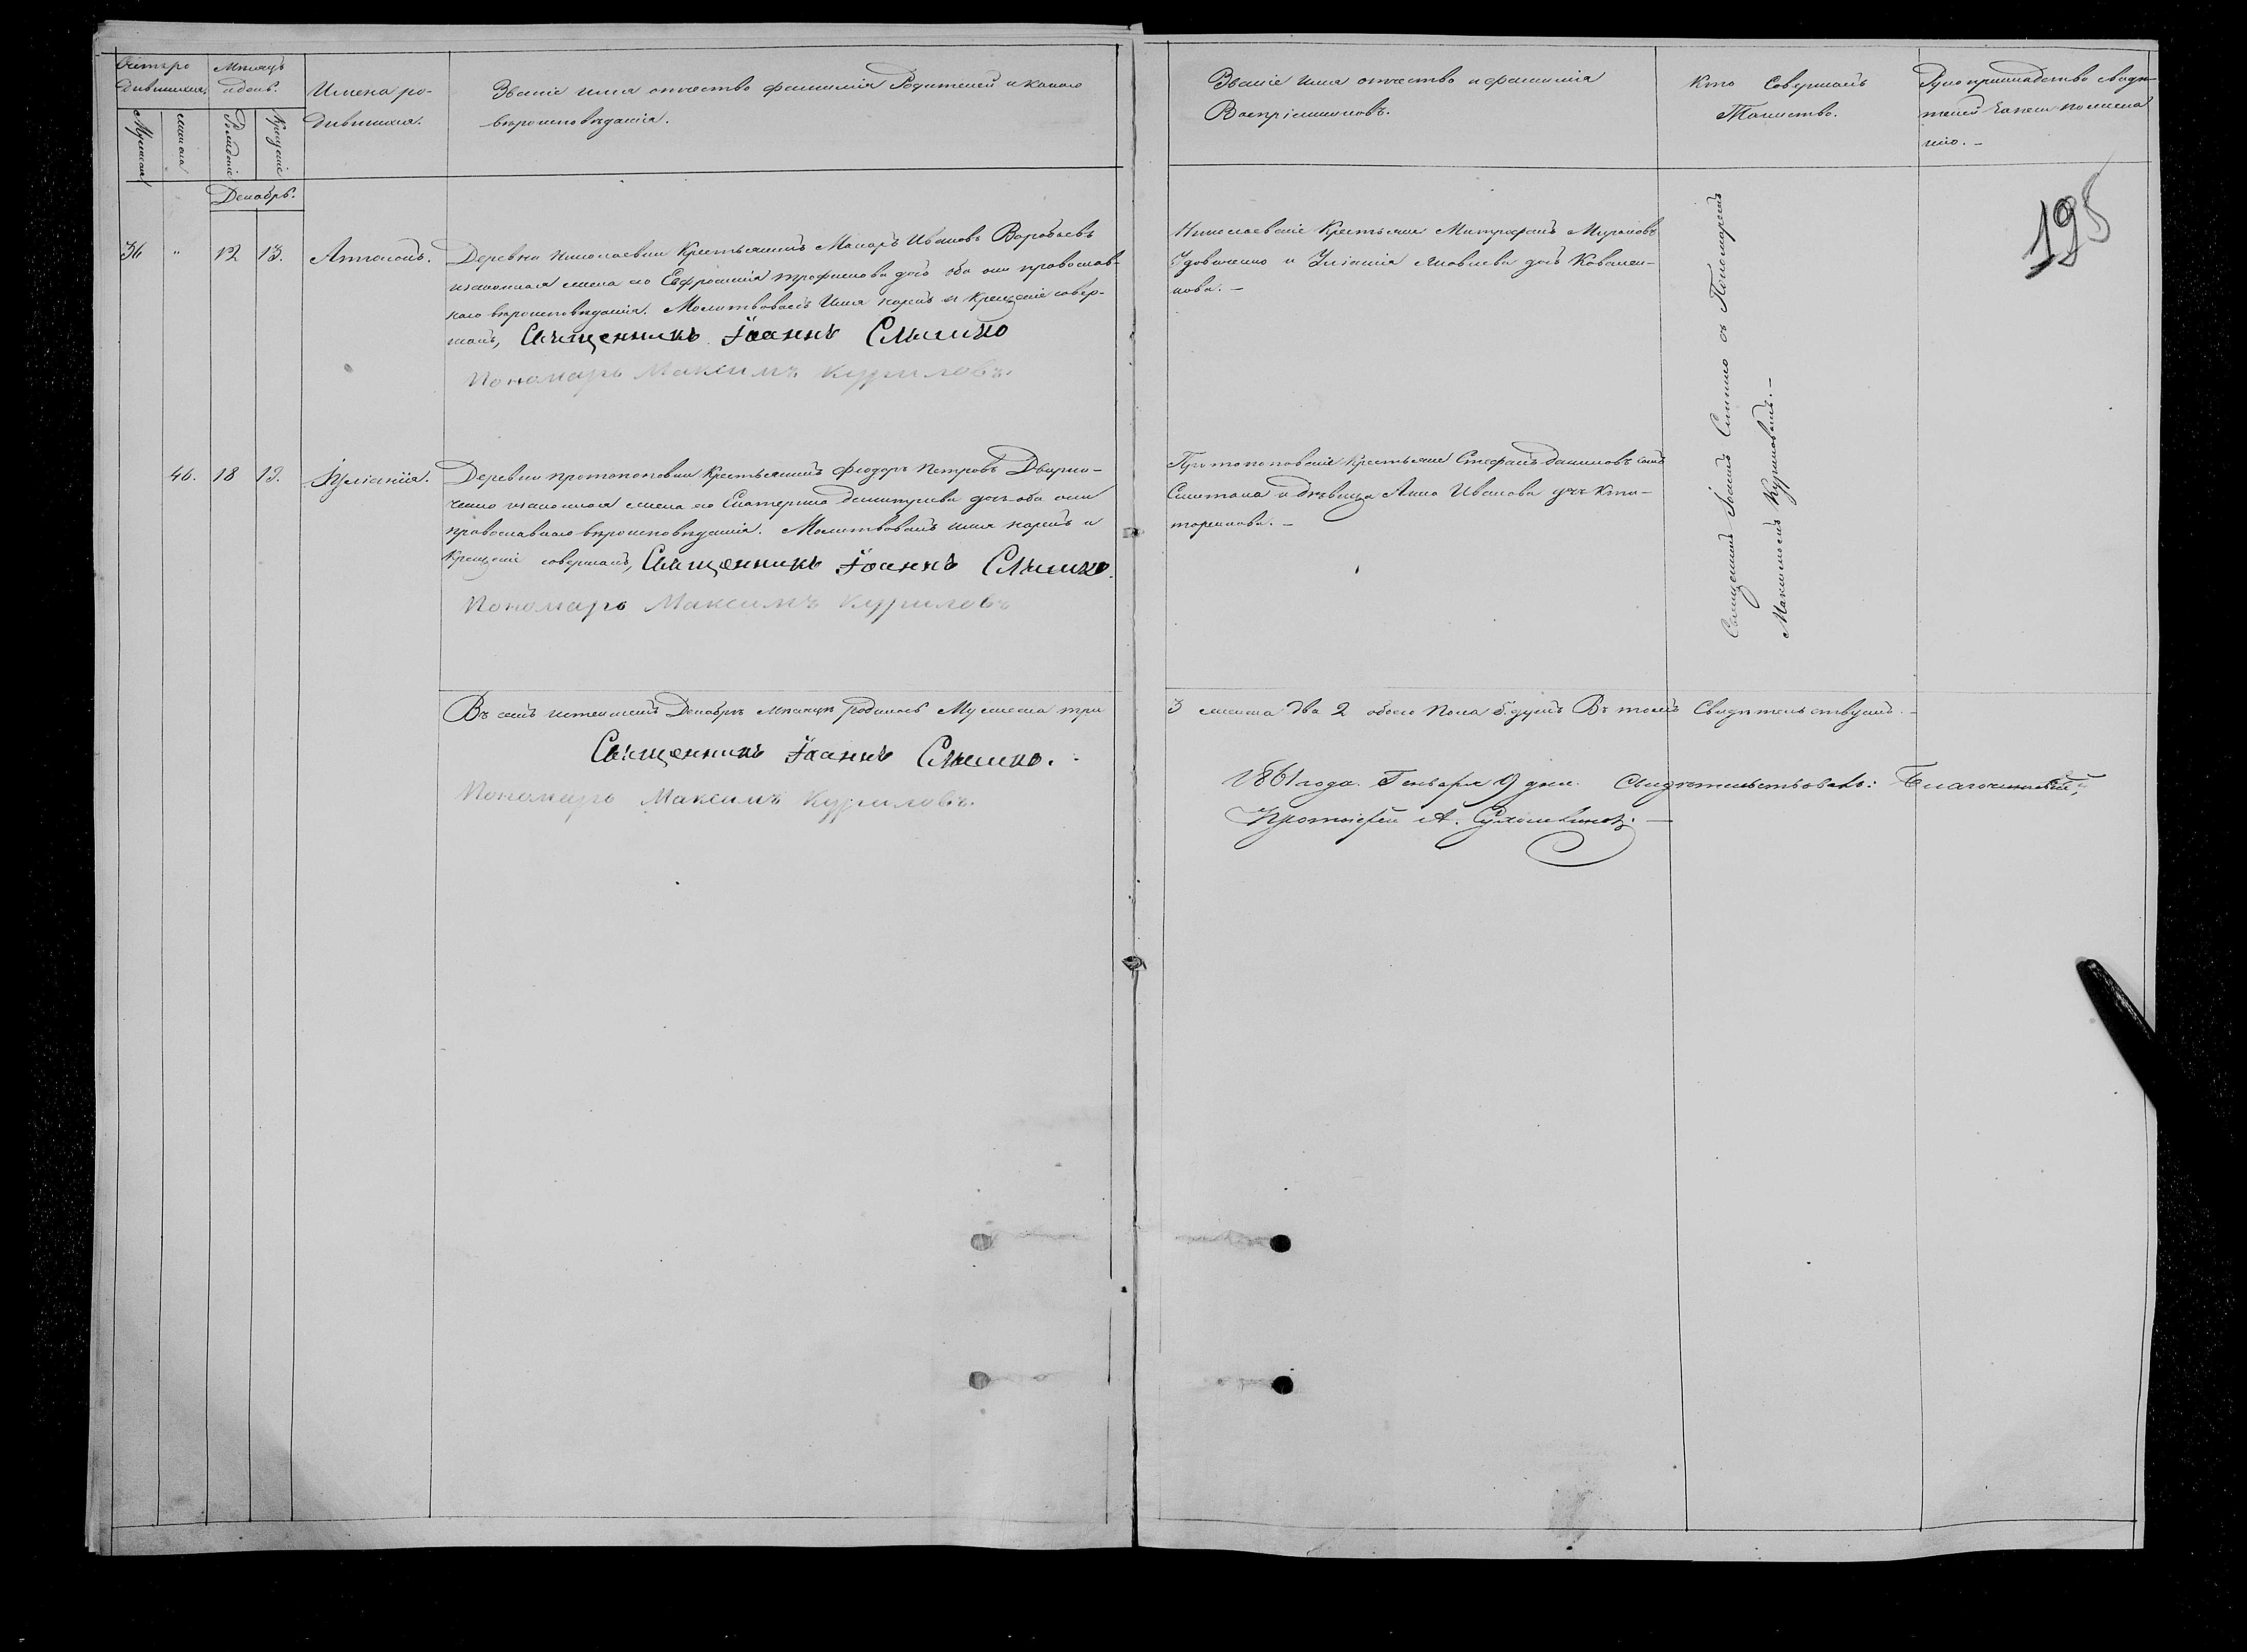 Счетъ ро
дившихся.
Мѣсяцъ
и день.
Мужеска
женска
Рожденіе
Крещеніе
Имена ро-
дившихся.
Званіе имя отчество фамилія Родителей и какого
вѣроисповѣданія.
Званіе имя отчество и фамилія
Воспріемниковъ.
Кто Совершалъ
Таинство.
Рукоприкладство свидѣ-
телей записи по жела
нію. -
Декабрь.
195
36 " 12 13. Антоній.
Деревни Николаевки Крестьянинъ Макаръ Ивановъ Воробьевъ
и законная жена его Евфросинія Трофимова дочь оба они православ-
наго вѣроисповѣданія. Молитвовалъ Имя нарекъ и Крещеніе совер-
шалъ, Священникъ Іоаннъ Слышко
Пономарь Максимъ Куриловъ.
Николаевскіе Крестьяне Митрофанъ Мироновъ
Удовиченко и Уліанія Яковлева дочь Ковален-
кова. -
Священникъ Іоаннъ Слышко съ Пономаремъ
Максимомъ Куриловымъ. -
46. 18 19. Іуліанія.
Деревни Протопоповки Крестьянинъ Феодоръ Петровъ Дворни-
ченко и законная жена его Екатерина Димитріева дочь оба они
православнаго вѣроисповѣданія. Молитвовалъ имя нарекъ и
Крещеніе совершалъ, Священникъ Іоаннъ Слышко.
Пономарь Максимъ Куриловъ
Протопоповскіе Крестьяне Стефанъ Даниловъ сынъ
Сметана и дѣвица Анна Иванова дочь Кти-
торенкова. -
Въ семъ истекшемъ Декабрѣ Мѣсяцѣ родилось Мужеска три
3 женска два 2 обоего Пола 5 душъ Въ томъ Свидѣтельствуемъ. -
Священникъ Іоаннъ Слышко.
Пономарь Максимъ Куриловъ.
1861 года Генваря 9 дня. Свидѣтельствовалъ: Благочинный,
Протоіерей А. -